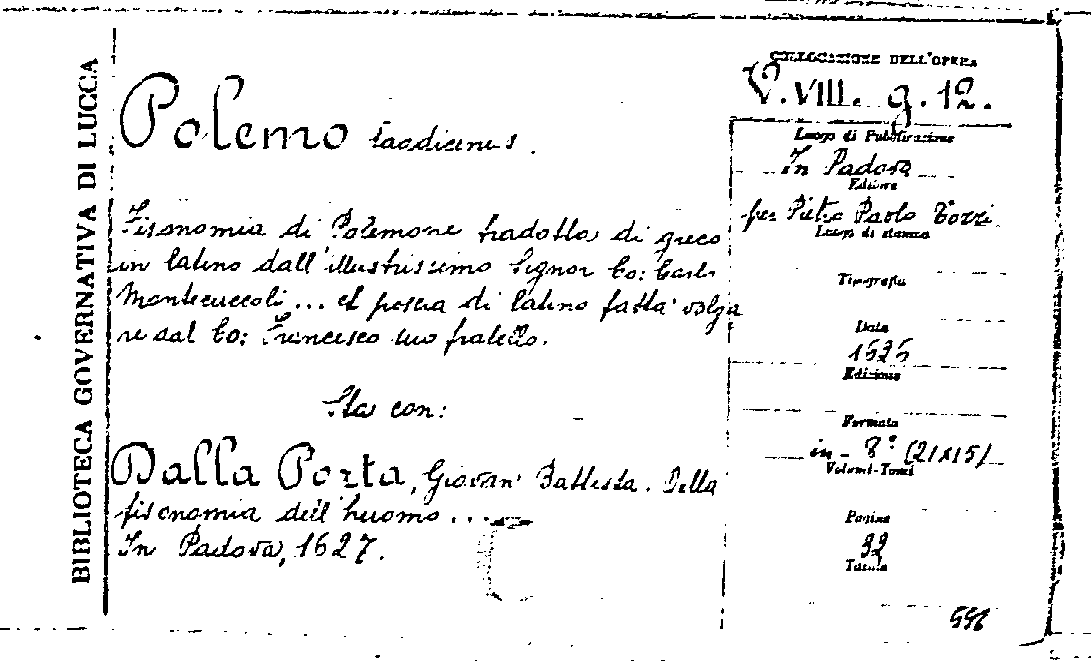 BIBLIOTECA GOVERNATIVA DI LUCCA
Polemo Laodicenus.
Fisonomia di Polemone tradotta di greco
in latino dall'illustrissimo Signor Co: Carlo
Montecuccoli... et poscia di latino fatta volga
re dal Co: Francesco suo fratello.
Sta con:
Dalla Porta, Giovan Battista. Della
fisonomia dell'huomo...
In Padova, 1627.
COLLOCAZIONE DELL'OPERA
V. VIII. g. 12.
Luogo di Pubblicazione
In Padova
Editore
per Pietro Paolo Tozzi
Luogo di stampa
Tipografia
Data
1626
Edizione
Formato
in-8° (21x15)
Volumi-Tomi
Pagine
92
Tavole